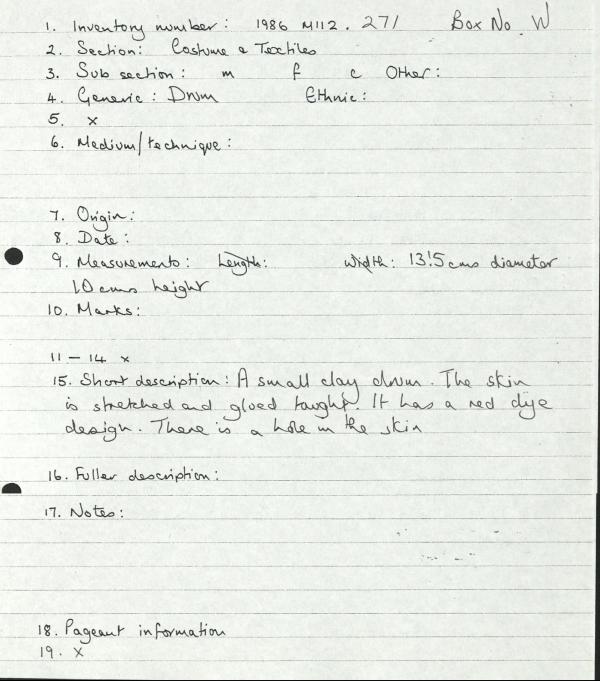 1. Inventory number: 1986 M112. 271 Box No. W
2. Section: Costume & Textiles
3. Sub section: m f c Other:
4. Generic: Drum Ethnic:
5. x
6. Medium/technique:
7. Origin:
8. Date:
9. Measurements: Length: Width: 13.5cms diameter
10 cms height
10. Marks:
11 - 14 x
15. Short description: A small clay drum. The skin
is stretched and glued taught. It has a red dye
design. There is a hole in the skin
16. Fuller description:
17. Notes:
18. Pageant information
19. X